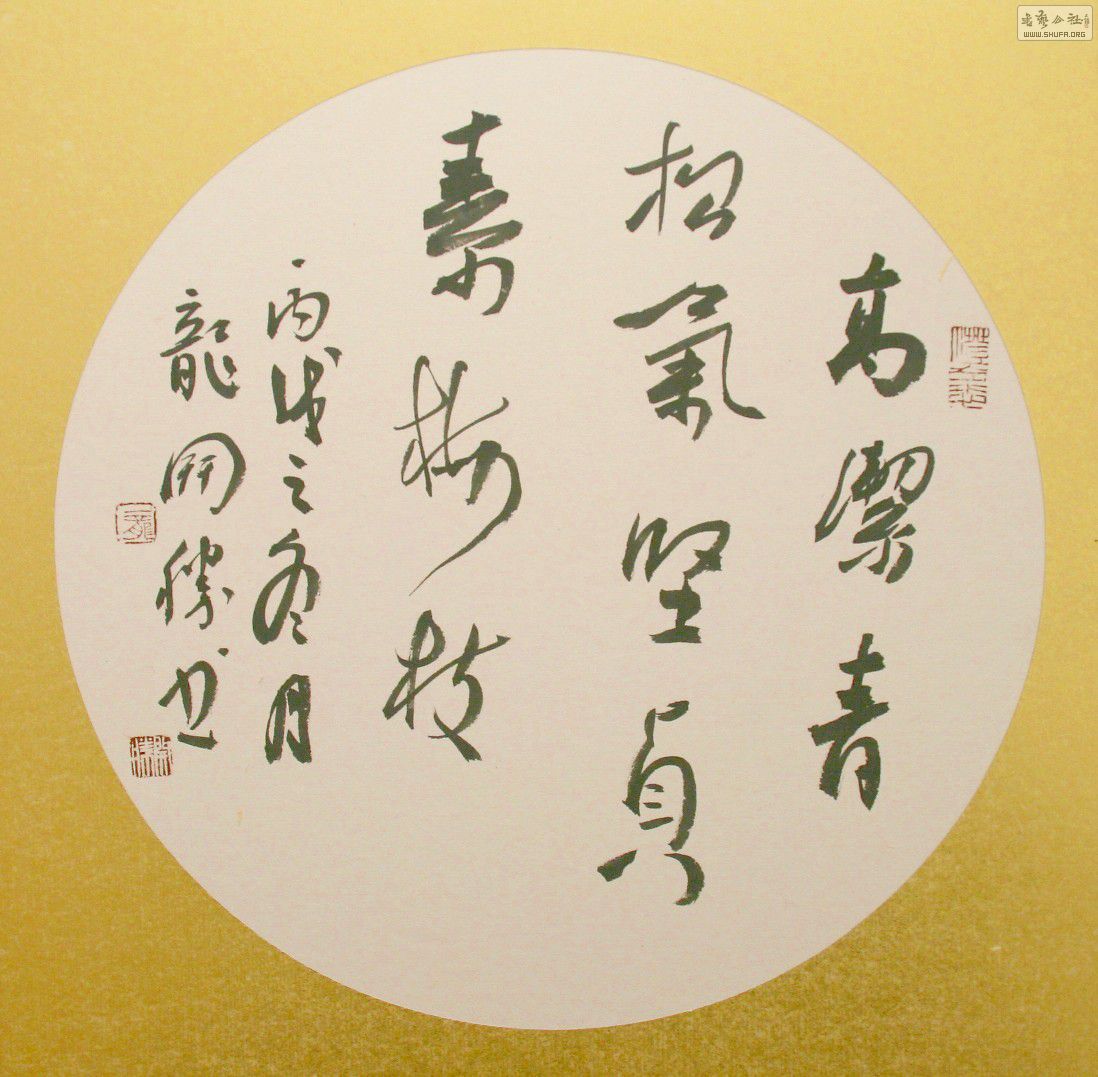 高潔青
松氣堅貞
素梅枝
丙戌之冬月
龍開勝书
書藝公社
WWW.SHUFA.ORG